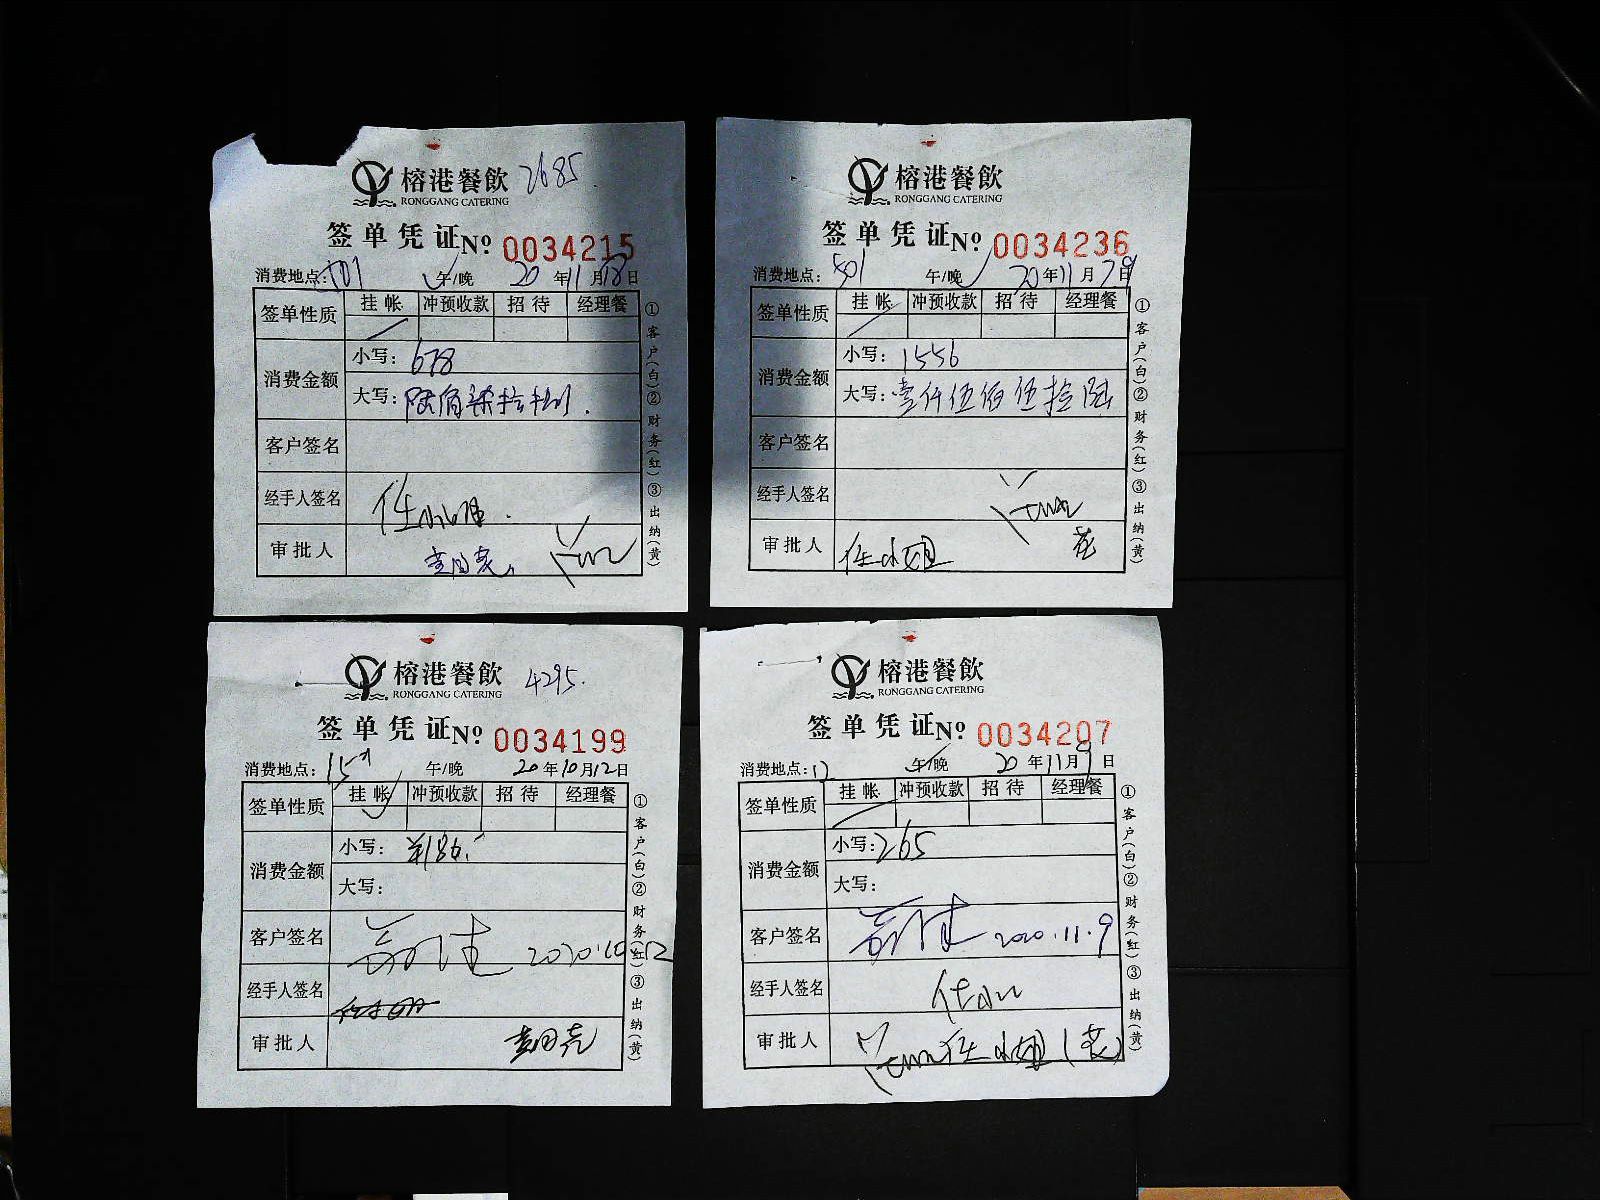 榕港餐飲 2685
RONGGANG CATERING
签单凭证 Nº 0034215
消费地点: 午/晚 20年11月18日
签单性质 挂帐 冲预收款 招待 经理餐
消费金额 小写: 678
大写: 陆佰柒拾捌
客户签名
经手人签名 任小姐
审批人
①客户(白)②财务(红)③出纳(黄)
榕港餐飲
RONGGANG CATERING
签单凭证 Nº 0034236
消费地点: 501 午/晚 20年11月29日
签单性质 挂帐 冲预收款 招待 经理餐
消费金额 小写: 1556
大写: 壹仟伍佰伍拾陆
客户签名
经手人签名
审批人 任小姐 花
①客户(白)②财务(红)③出纳(黄)
榕港餐飲 4295.
RONGGANG CATERING
签单凭证 Nº 0034199
消费地点: 午/晚 20年10月12日
签单性质 挂帐 冲预收款 招待 经理餐
消费金额 小写: ¥186.
大写:
客户签名 2020.10.12
经手人签名
审批人
①客户(白)②财务(红)③出纳(黄)
榕港餐飲
RONGGANG CATERING
签单凭证 Nº 0034207
消费地点: 12 午/晚 20年11月9日
签单性质 挂帐 冲预收款 招待 经理餐
消费金额 小写: 265
大写:
客户签名 2020.11.9
经手人签名
审批人 任小姐(花)
①客户(白)②财务(红)③出纳(黄)